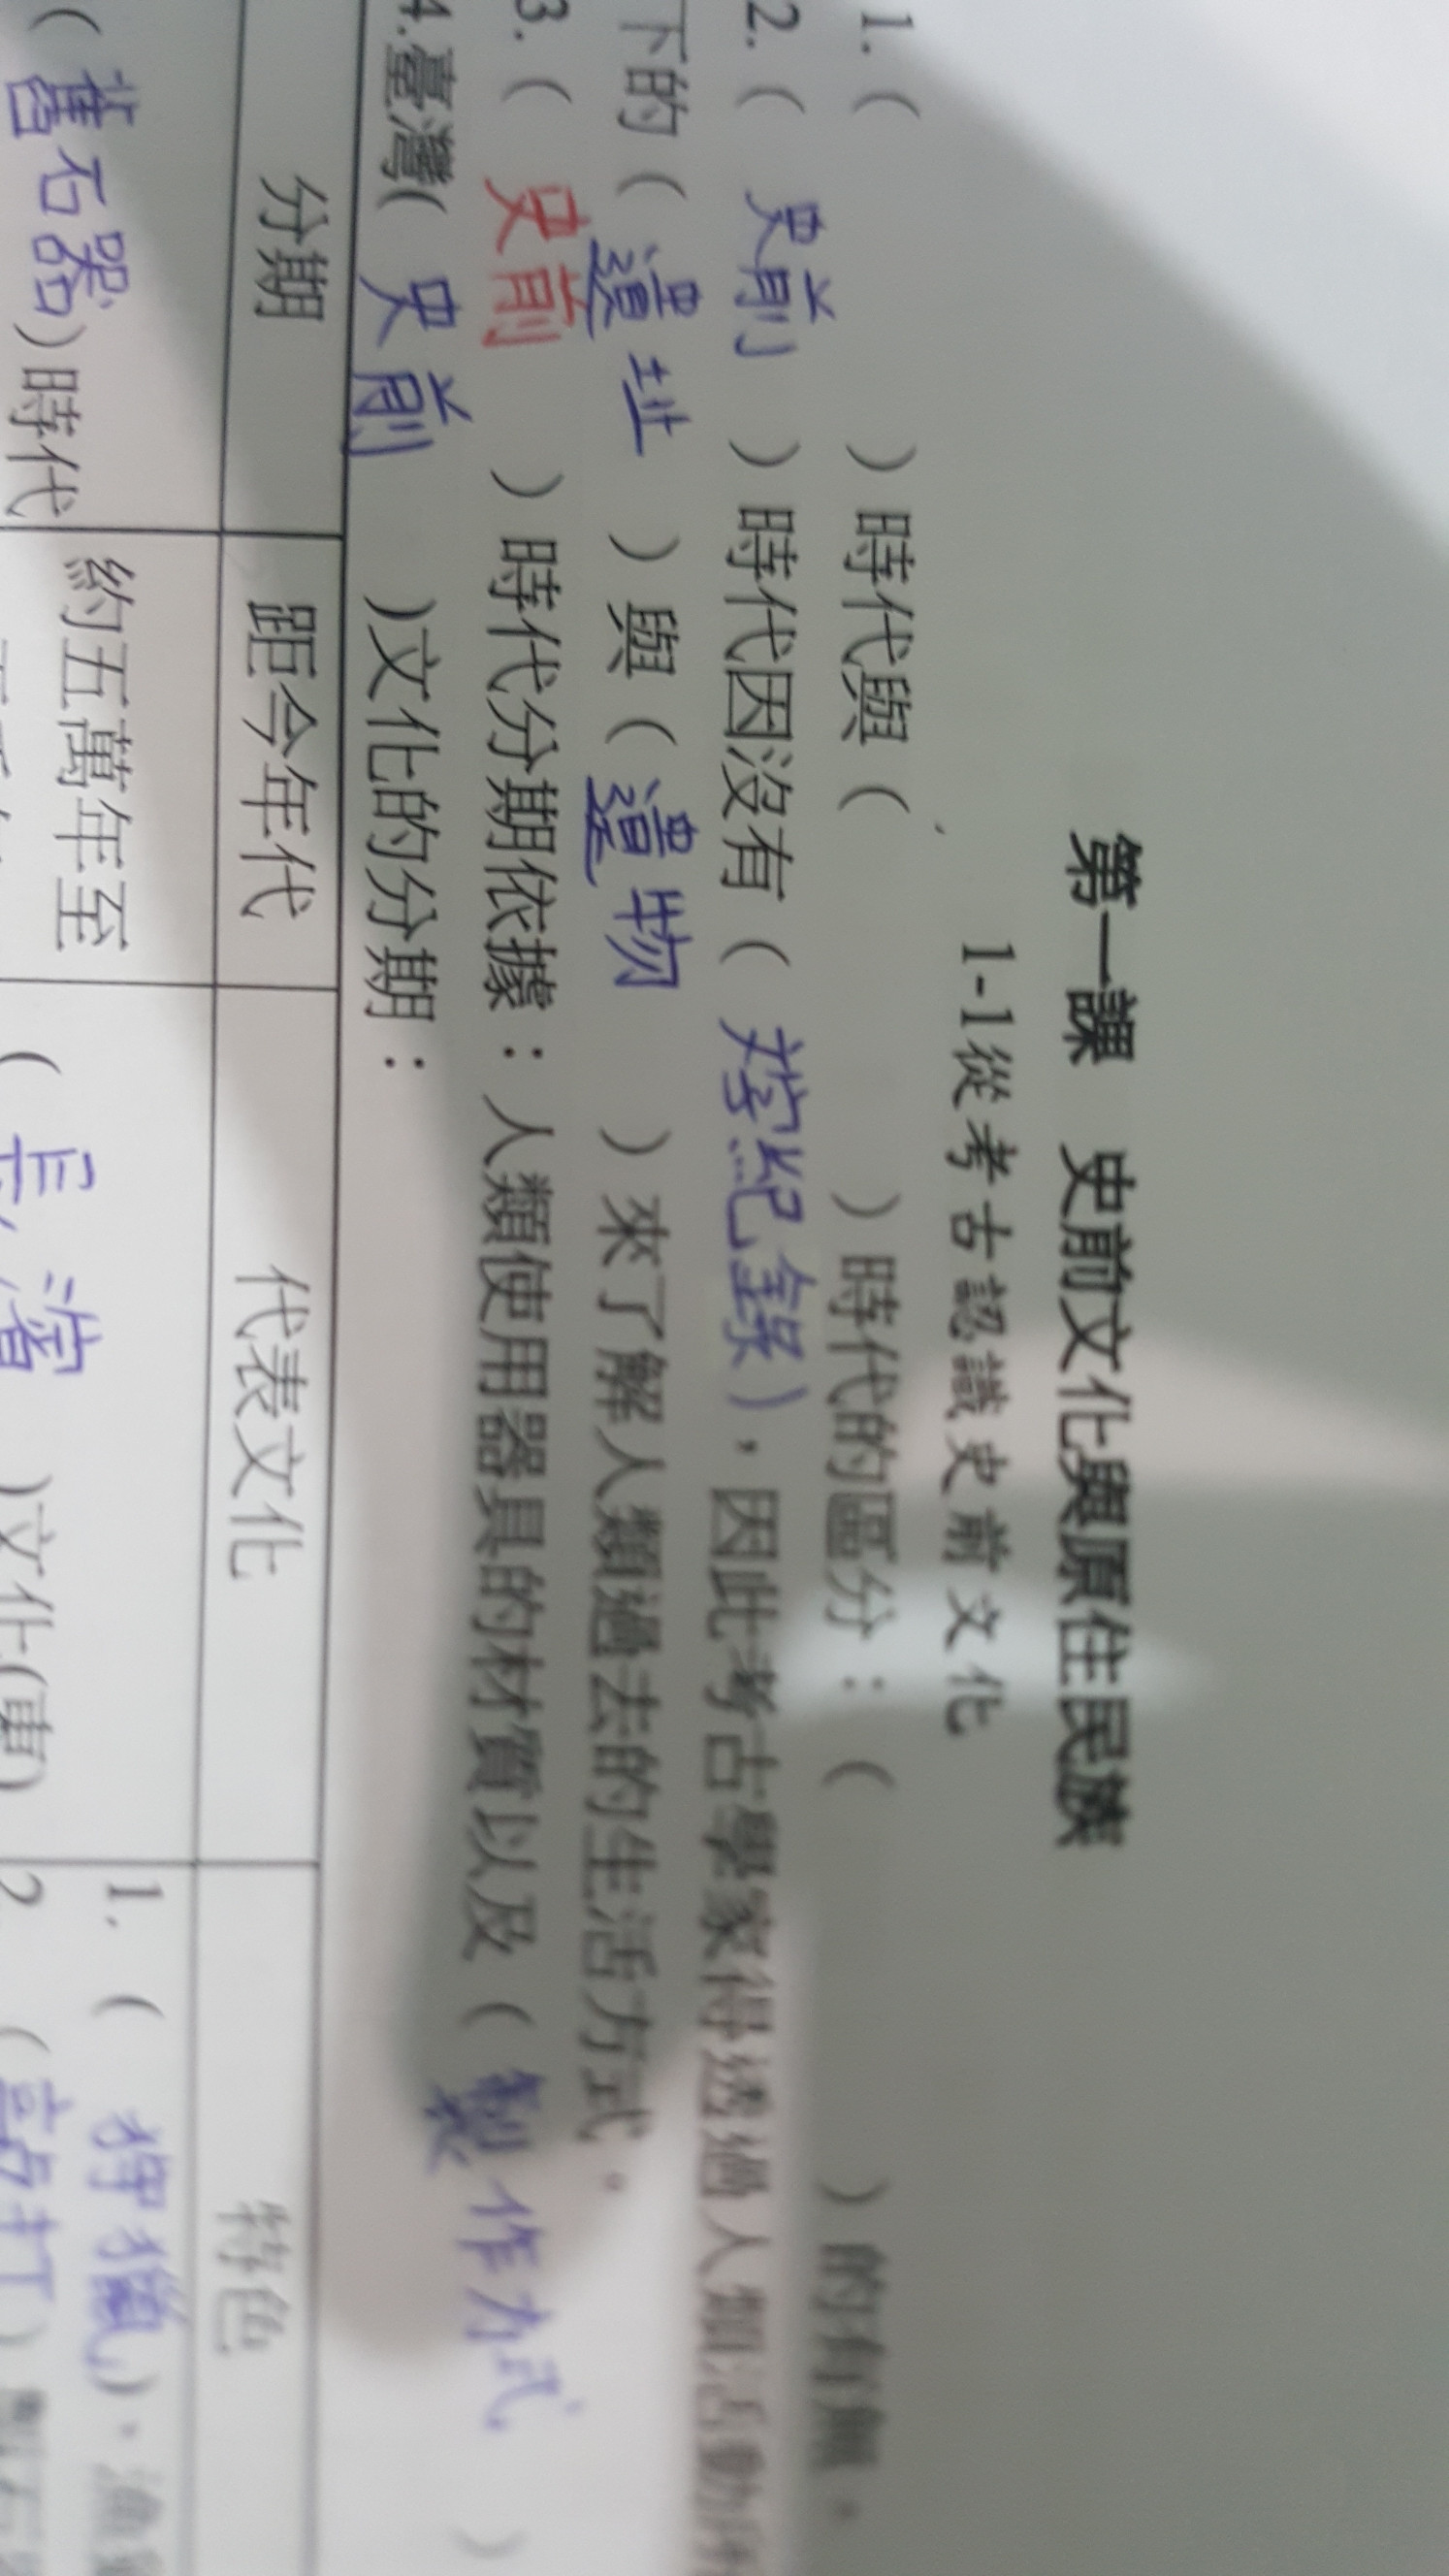 第一課 史前文化與原住民族
1-1從考古認識史前文化
1.( )時代與( )時代的區分:( )的有無。
2.( 史前 )時代因沒有( 文字紀錄),因此考古學家得透過人類活動所
下的( 遺址 )與( 遺物 )來了解人類過去的生活方式。
3.( 史前 )時代分期依據:人類使用器具的材質以及( 製作方式 )
4.臺灣( 史前 )文化的分期:
分期 距今年代 代表文化 特色
(舊石器)時代 約五萬年至 ( 長濱 )文化(東) 1.( 狩獵)、漁
2.(敲打)